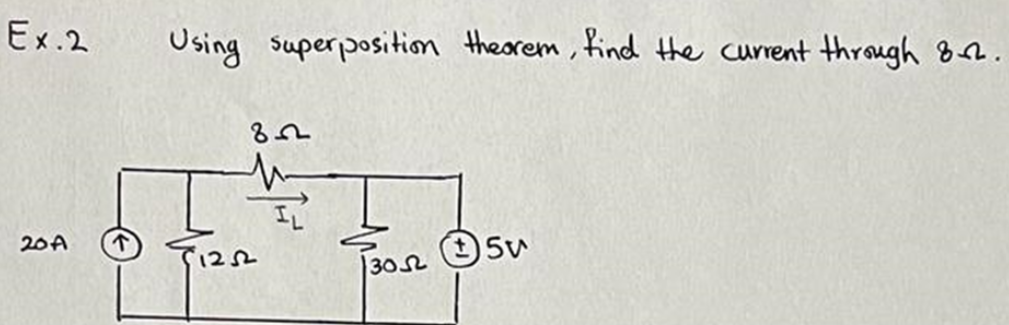 Ex.2 Using superposition theorem, find the current through 8Ω.
8Ω
I_L
20A 12Ω 30Ω 5V